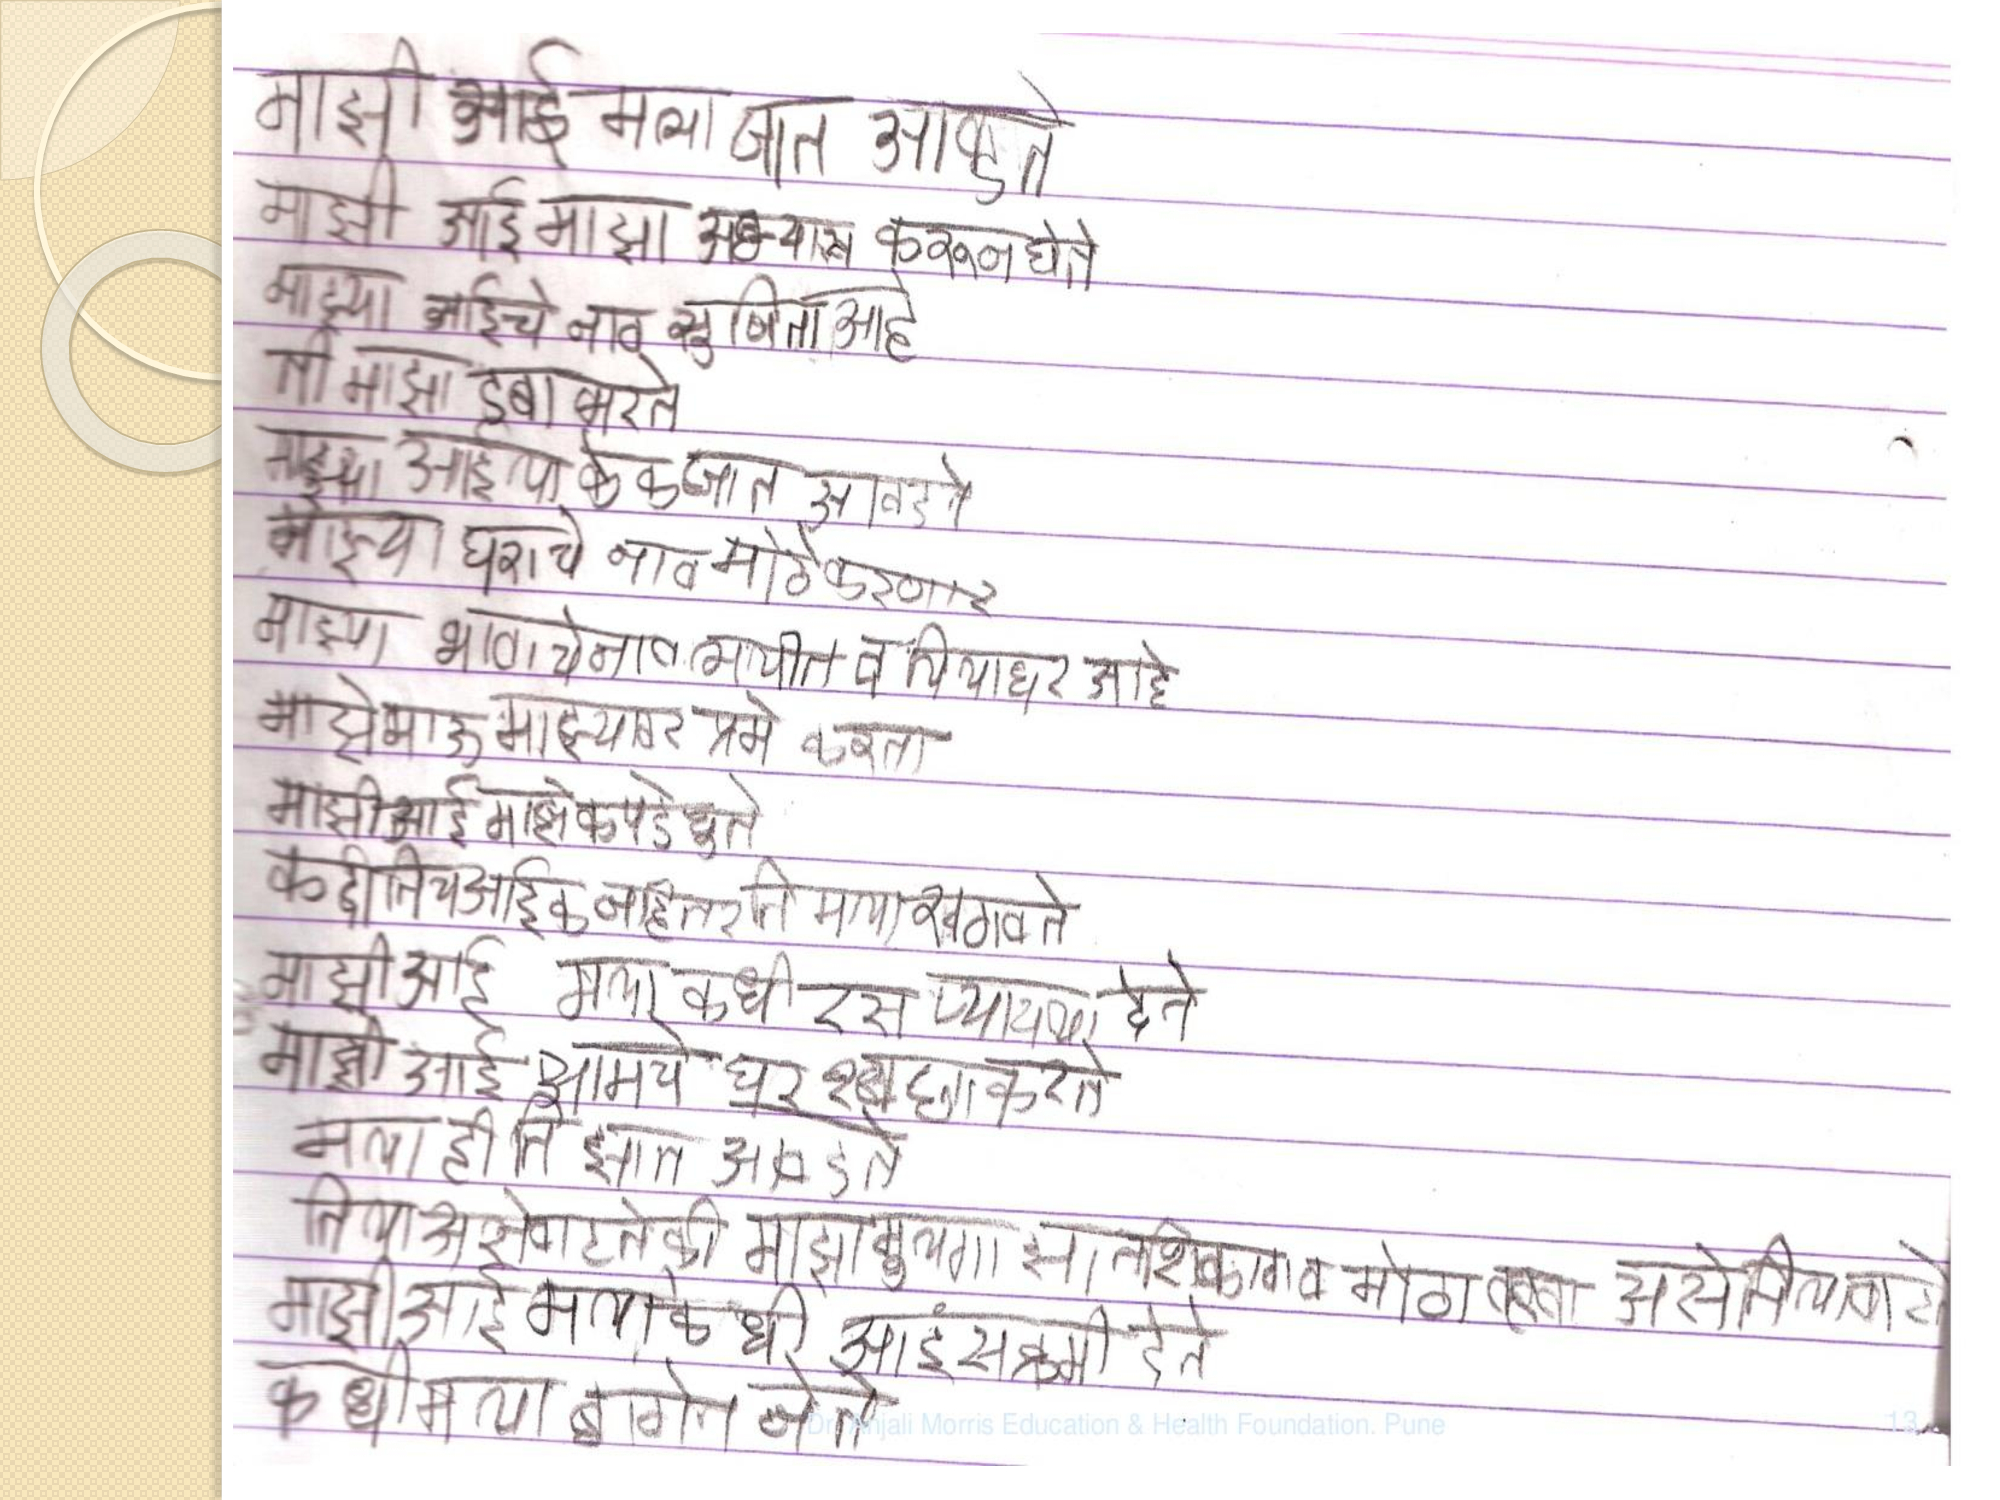 माझी आई मला जात आवडते
माझी आई माझा अभ्यास करून घेते
माझ्या आईचे नाव सुषिता आहे
ती माझा डबा भरते
माझ्या आईला केक जात आवडते
माझ्या घराचे नाव मोठे करणार
माझ्या भावाचे नाव व आहे
माझे भाऊ माझ्यावर प्रमे करता
माझी आई माझे कपडे धुते
कदी तिच आईक नाहि तर ति मला रागवते
माझी आई मला कधी रस प्यायला देते
माझी आई आमचे घर करते
मला ही ति झात आवडते
तिला असे वाटते की माझा मुलगा मोठा असे तिला वाटते
माझी आई मला कधी आइसक्रमी देते
कधी मला बागेत नेते
Dr. Anjali Morris Education & Health Foundation. Pune
13